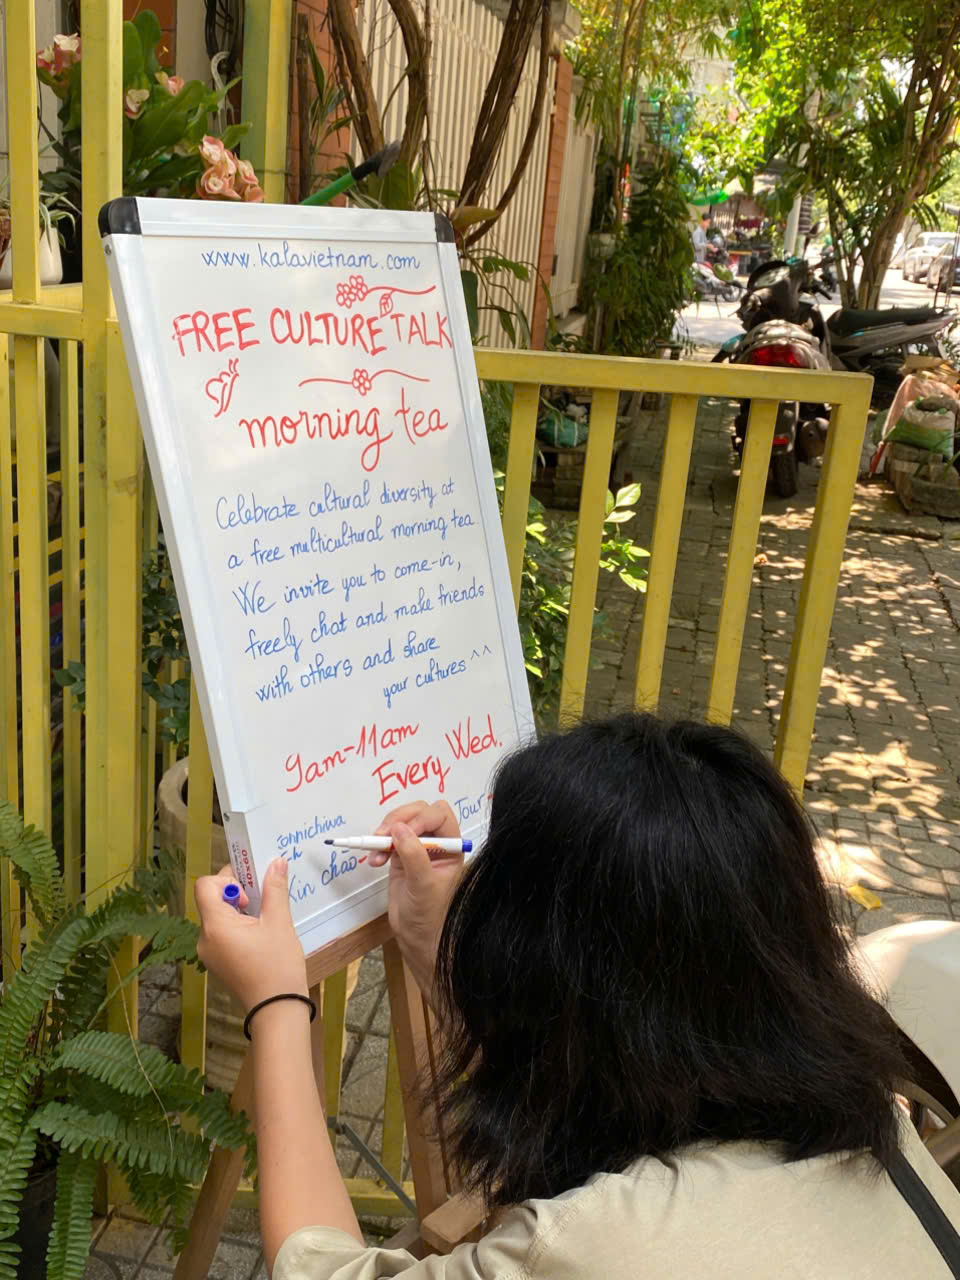 www.kalavietnam.com
FREE CULTURE TALK
morning tea
Celebrate cultural diversity at
a free multicultural morning tea.
We invite you to come-in,
freely chat and make friends
with others and share
your cultures ^^
9am-11am
Every Wed.
Xin chào
40x60